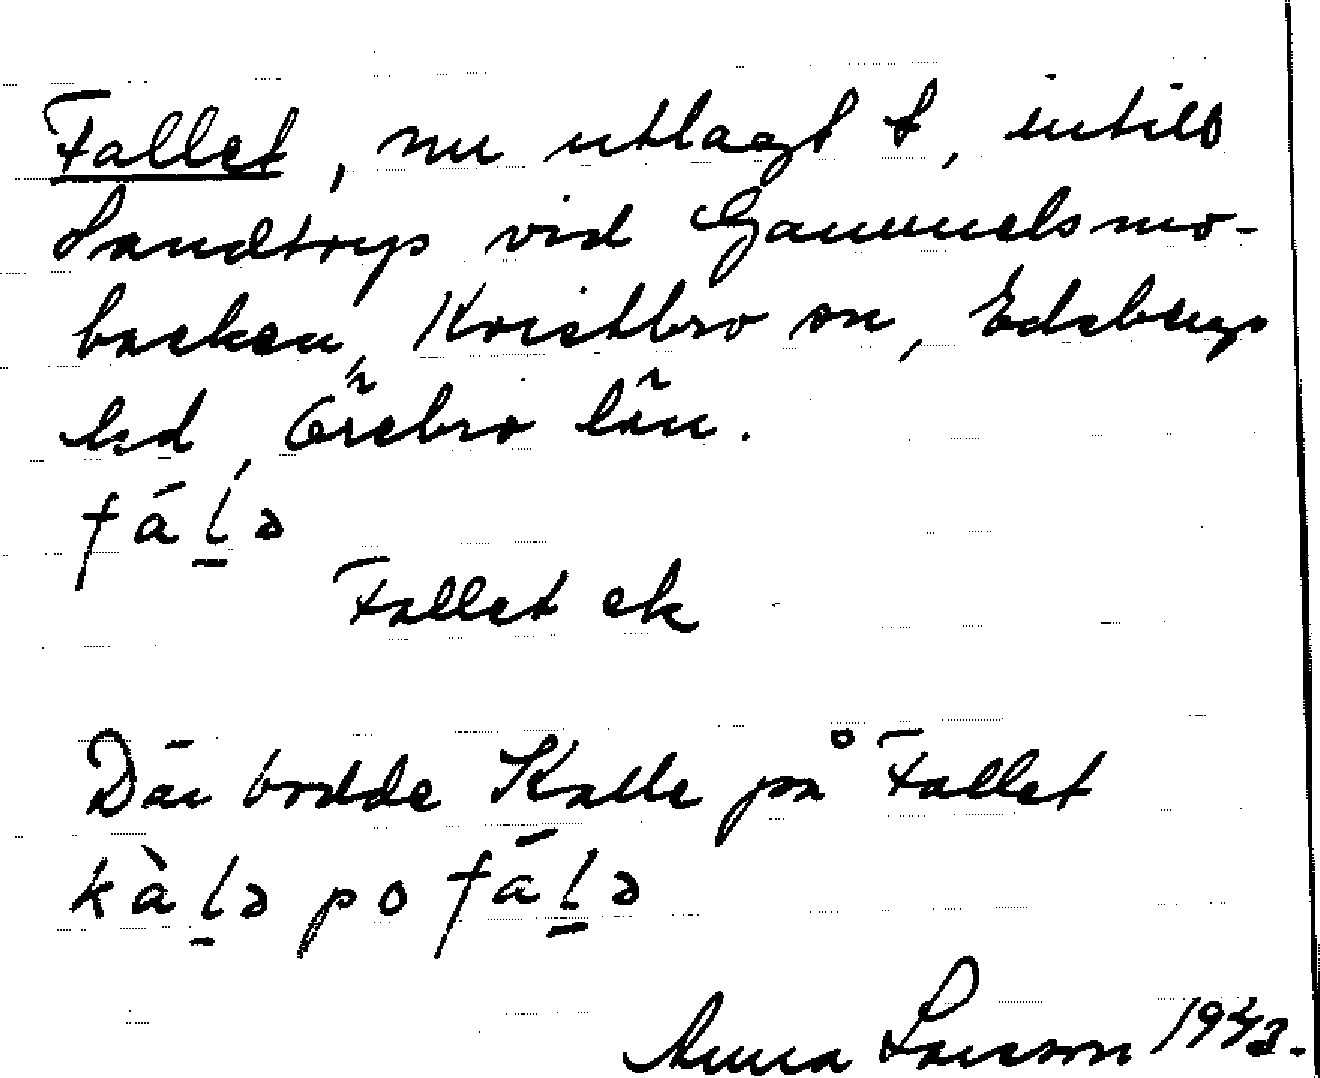 Fallet, nu utlagt t, intill
Sandtorp vid Gammelsmo-
backen, Kvistbro sn, Edsbergs
hd, Örebro län.
fáḻə
Fallet ek
Där bodde Kalle på Fallet
kàḻə po fáḻə
Anna Larsson